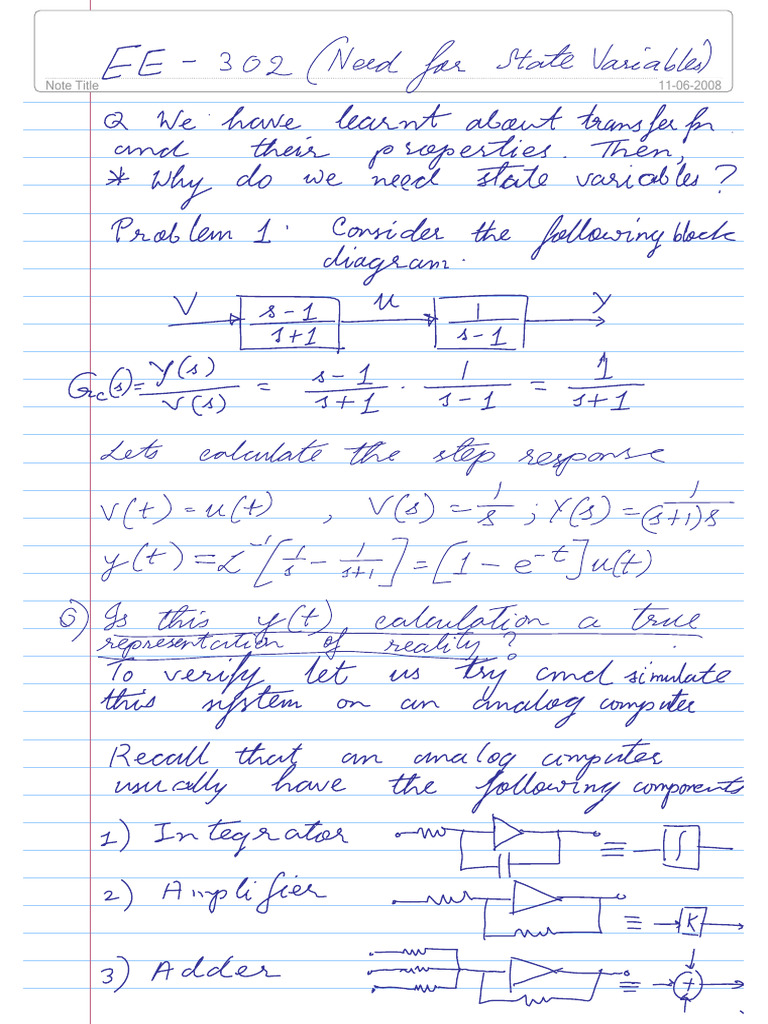 EE - 302 (Need for State Variables)
Note Title 11-06-2008
Q We have learnt about transfer fn
and their properties. Then,
* Why do we need state variables?
Problem 1. Consider the following block
diagram.
V s-1/s+1 u 1/s-1 Y
Gc(s) = Y(s)/V(s) = s-1/s+1 . 1/s-1 = 1/s+1
Lets calculate the step response
v(t) = u(t) , V(s) = 1/s ; Y(s) = 1/(s+1)s
y(t) = L^-1 [1/s - 1/s+1] = [1 - e^-t] u(t)
Q) Is this y(t) calculation a true
representation of reality?
To verify let us try and simulate
this system on an analog computer
Recall that an analog computer
usually have the following components
1) Integrator ≡ ∫
2) Amplifier ≡ K
3) Adder ≡ +